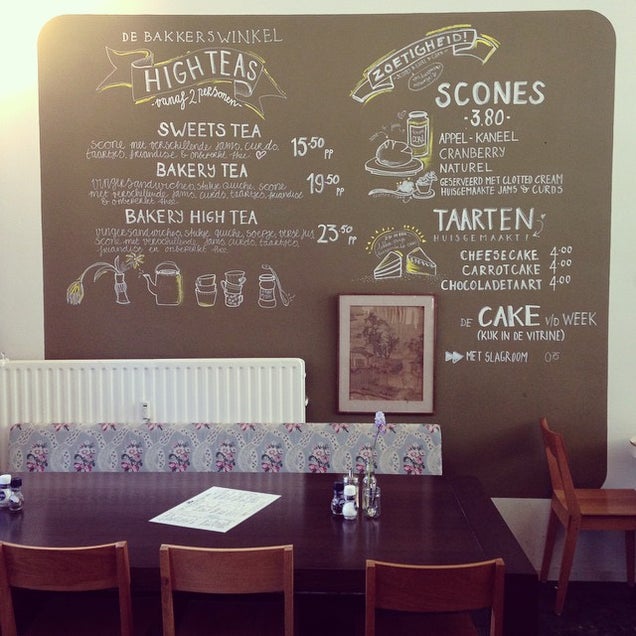 DE BAKKERSWINKEL
HIGH TEAS
vanaf 2 personen
SWEETS TEA
scone met verschillende jams, curds,
taartjes, friandise & onbeperkt thee
15.50 pp
BAKERY TEA
vingersandwiches, stukje quiche, scone
met verschillende jams, curds, taartjes, friandise
& onbeperkt thee
19.50 pp
BAKERY HIGH TEA
vingersandwiches, stukje quiche, soepje, verse jus
scone met verschillende jams, curds, taartjes,
friandise en onbeperkt thee
23.50 pp
ZOETIGHEID!
SCONES
-3.80-
APPEL-KANEEL
CRANBERRY
NATUREL
GESERVEERD MET CLOTTED CREAM
HUISGEMAAKTE JAMS & CURDS
TAARTEN
HUISGEMAAKT!
CHEESECAKE 4.00
CARROTCAKE 4.00
CHOCOLADETAART 4.00
DE CAKE V/D WEEK
(KIJK IN DE VITRINE)
MET SLAGROOM